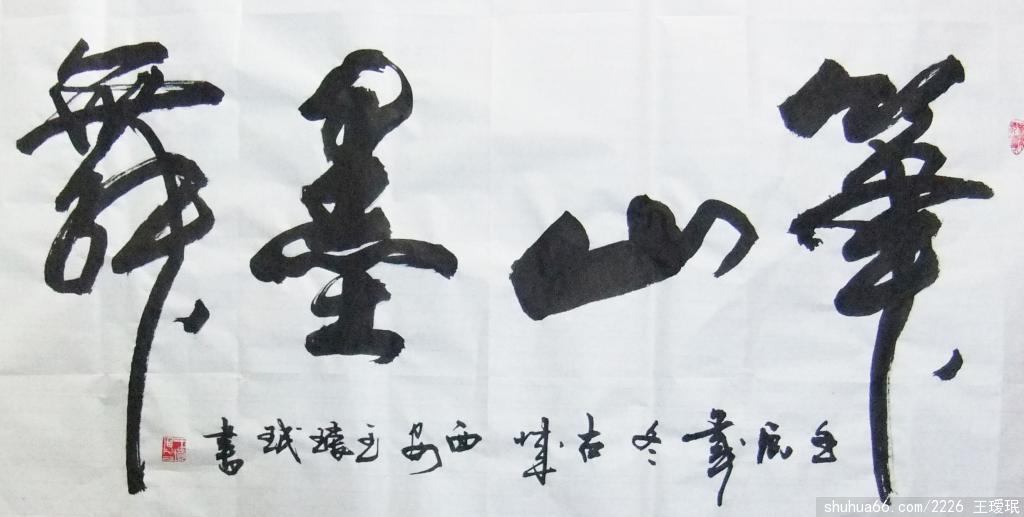 筆山墨舞
壬辰歲冬古城西安王瑷珉書
shuhua66.com/2226 王瑷珉